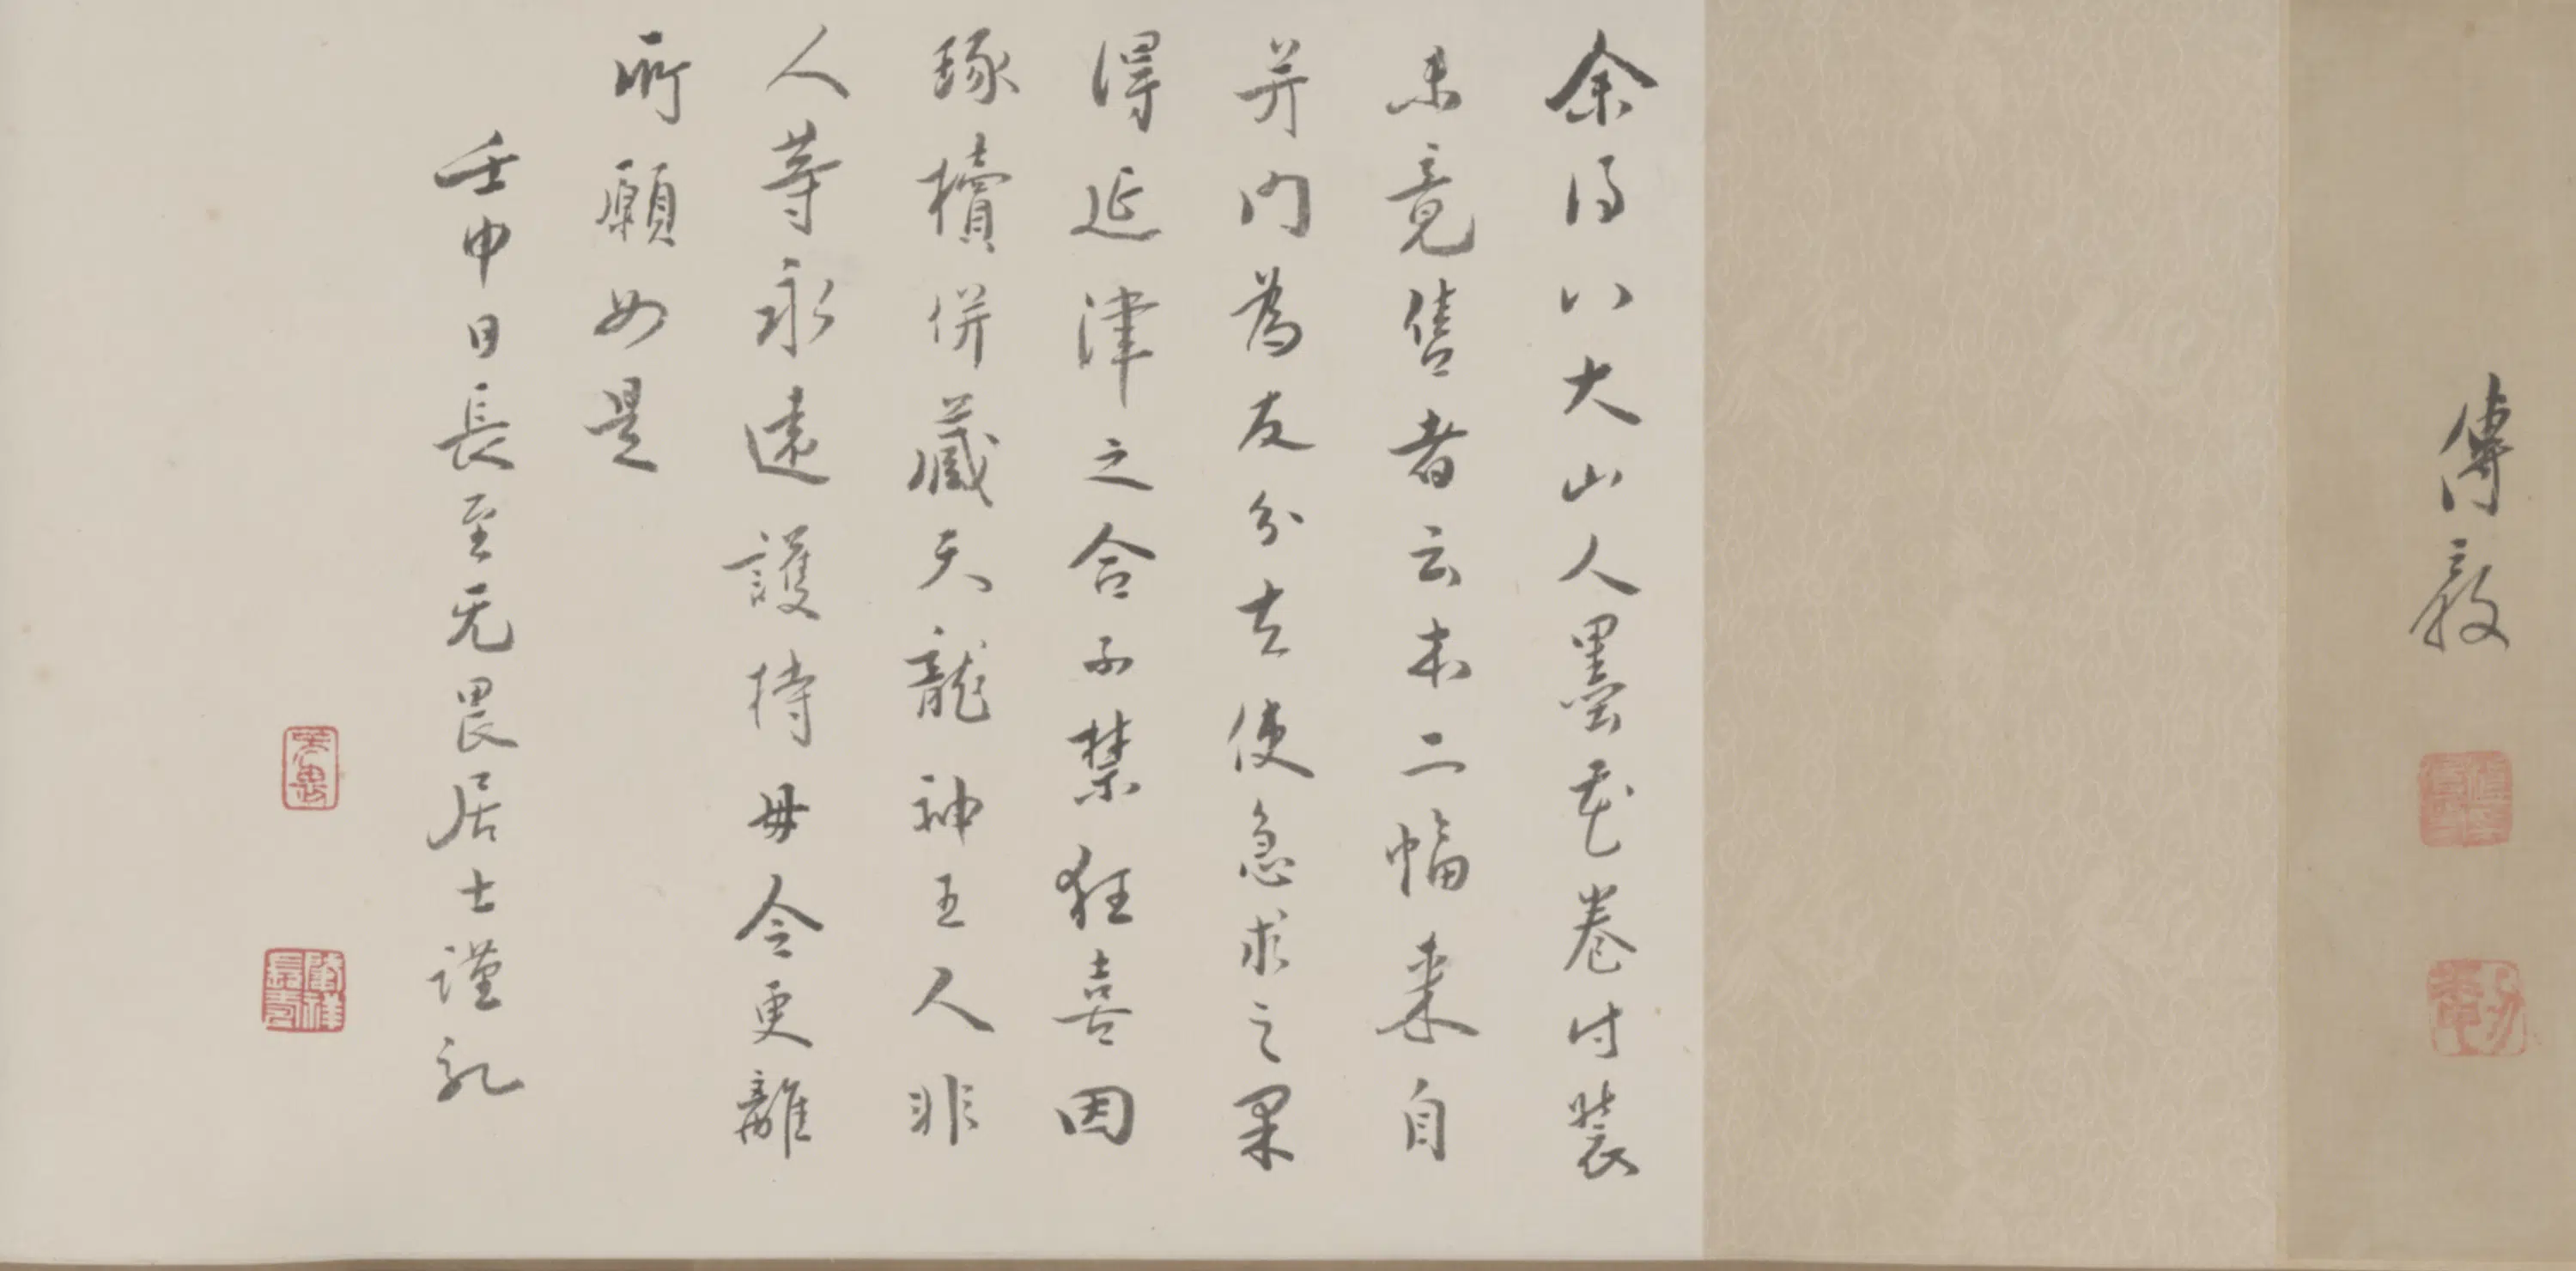 傅毅
余得八大山人墨花卷付裝
未竟售者云本二幅来自
并門為友分去使急求之果
得延津之合不禁狂喜因
琢櫝併藏天龍神王人非
人等永遠護持毋令更離
所願如是
壬申日長至无畏居士謹記
无畏